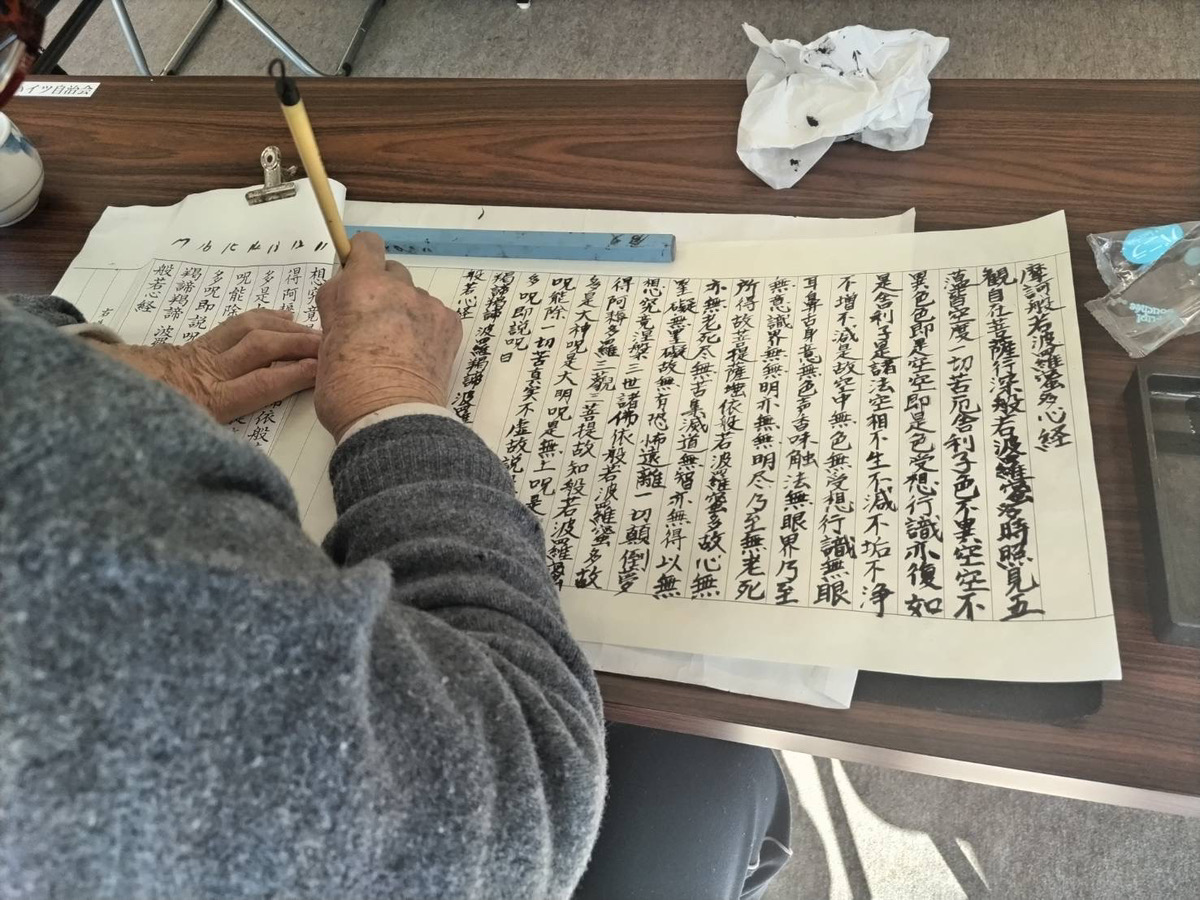 摩訶般若波羅蜜多心経
観自在菩薩行深般若波羅蜜多時照見五
蘊皆空度一切苦厄舎利子色不異空空不
異色色即是空空即是色受想行識亦復如
是舎利子是諸法空相不生不滅不垢不浄
不増不減是故空中無色無受想行識無眼
耳鼻舌身意無色声香味触法無眼界乃至
無意識界無無明亦無無明尽乃至無老死
所得故菩提薩埵依般若波羅蜜多故心無
亦無老死尽無苦集滅道無智亦無得以無
罣礙無罣礙故無有恐怖遠離一切顛倒夢
想究竟涅槃三世諸佛依般若波羅蜜多故
得阿耨多羅三藐三菩提故知般若波羅蜜
多是大神呪是大明呪是無上呪是
呪能除一切苦真実不虚故説
多呪即説呪曰
羯諦羯諦波羅羯諦波羅
般若心経
11
12
13
14
15
16
17
想究竟
得阿耨
多是
呪能除
多呪即説呪
羯諦羯諦 波
般若心経
イツ自治会